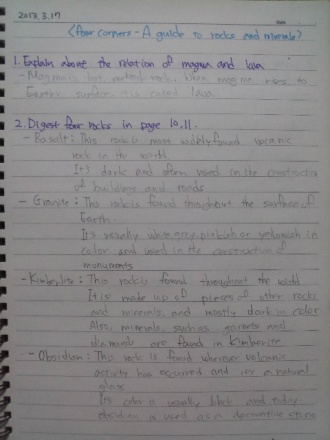 2017. 3. 17
<four corners - A guide to rocks and minerals>
1. Explain above the relation of magma and lava
- Magma is hot, melted rock. When magma rises to
Earth's surface it is called lava.
2. Digest four rocks in page 10, 11.
- Basalt : This rock is most widely found volcanic
rock in the world.
It's dark and often used in the construction
of buildings and roads
- Granite : This rock is found throughout the surface of
Earth.
It's usually white, grey, pinkish or yellowish in
color and used in the construction of
monuments
- Kimberlite : This rock is found throughout the world
It is made up of pieces of other rocks
and minerals, and mostly dark in color
Also, minerals, such as garnets and
diamonds are found in Kimberlite
- Obsidian : This rock is found wherever volcanic
activity has occurred and it's a natural
glass
Its color is usually black and today
obsidian is used as a decorative stone